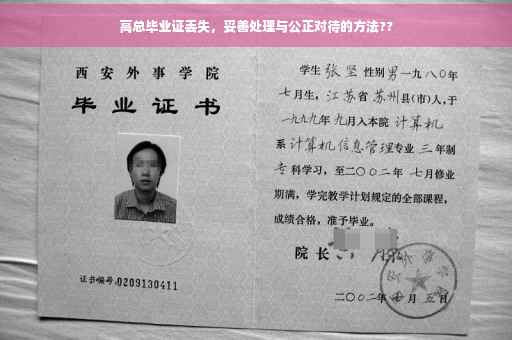 高总毕业证丢失，妥善处理与公正对待的方法??
西安外事学院
毕业证书
证书编号:0209130411
学生 张坚 性别 男 一九八〇年
七月生，江苏省 苏州县(市)人，于
一九九九年 九月入本院 计算机
系 计算机信息管理专业 三 年制
专科学习，至二〇〇二年 七月修业
期满，学完教学计划规定的全部课程，
成绩合格，准予毕业。
院长
二〇〇二年 月五日